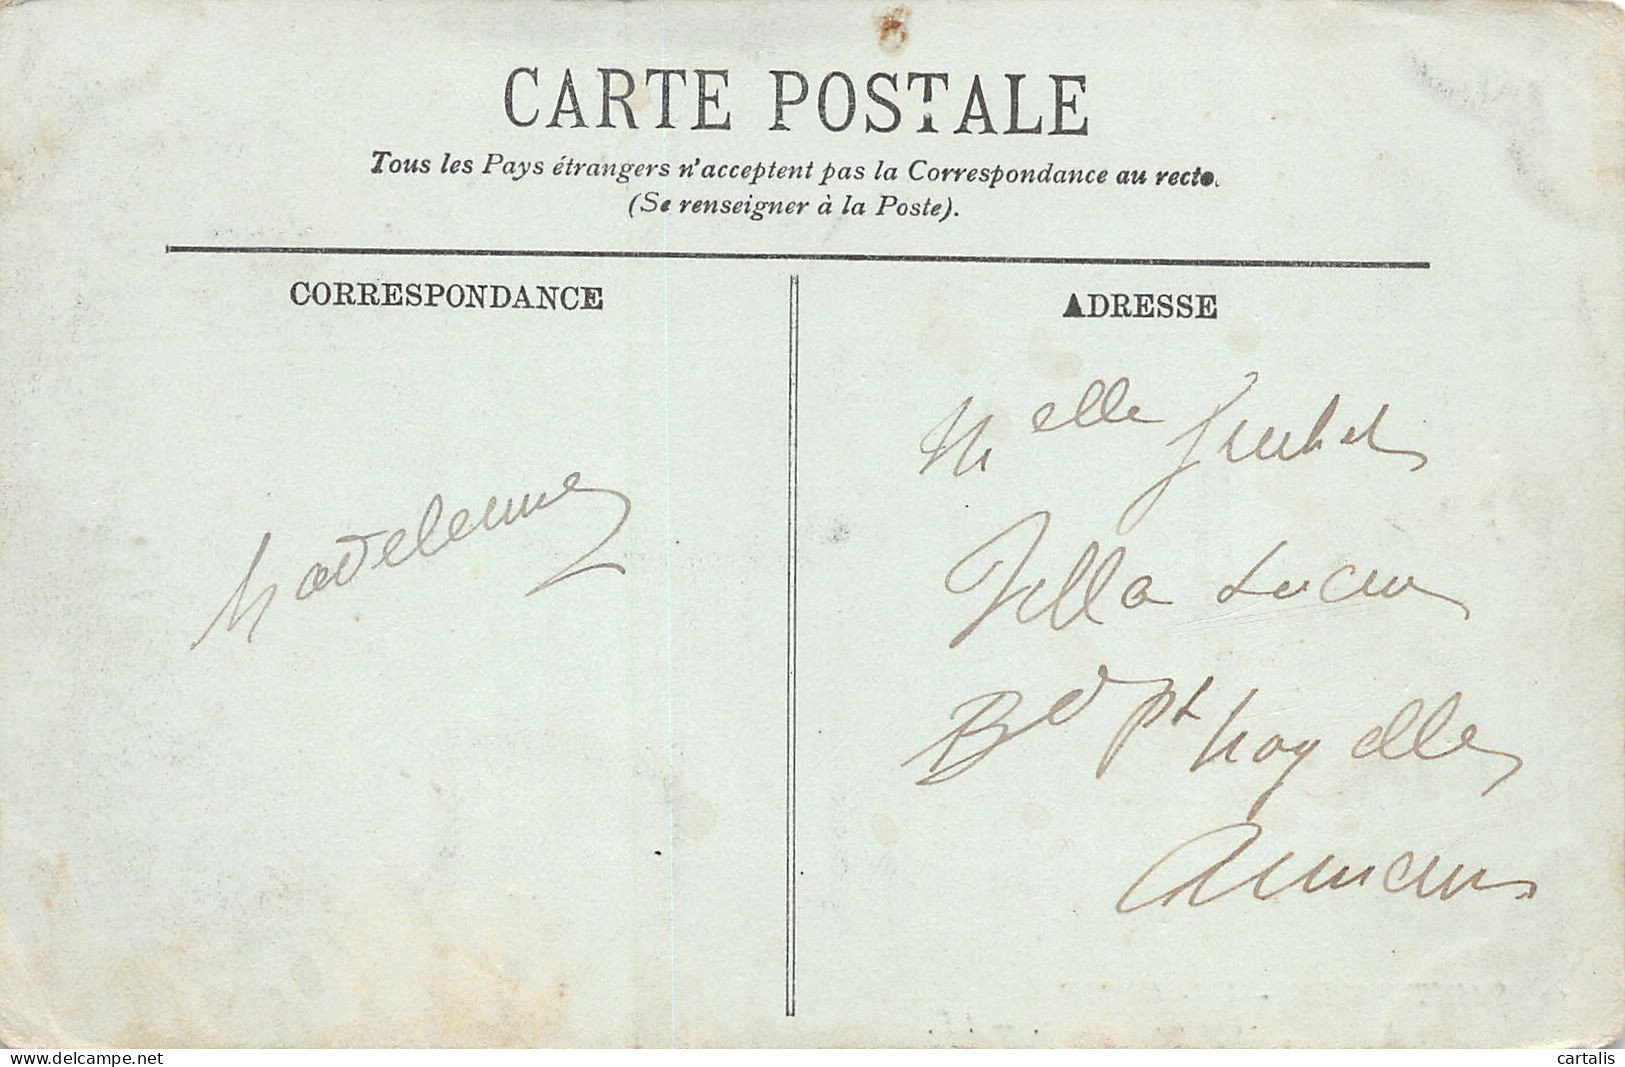 CARTE POSTALE
Tous les Pays étrangers n'acceptent pas la Correspondance au recto.
(Se renseigner à la Poste).
CORRESPONDANCE
ADRESSE
Madeleine
Melle
Villa Lucien
Bd Pt Noyelle
Amiens
cartalis